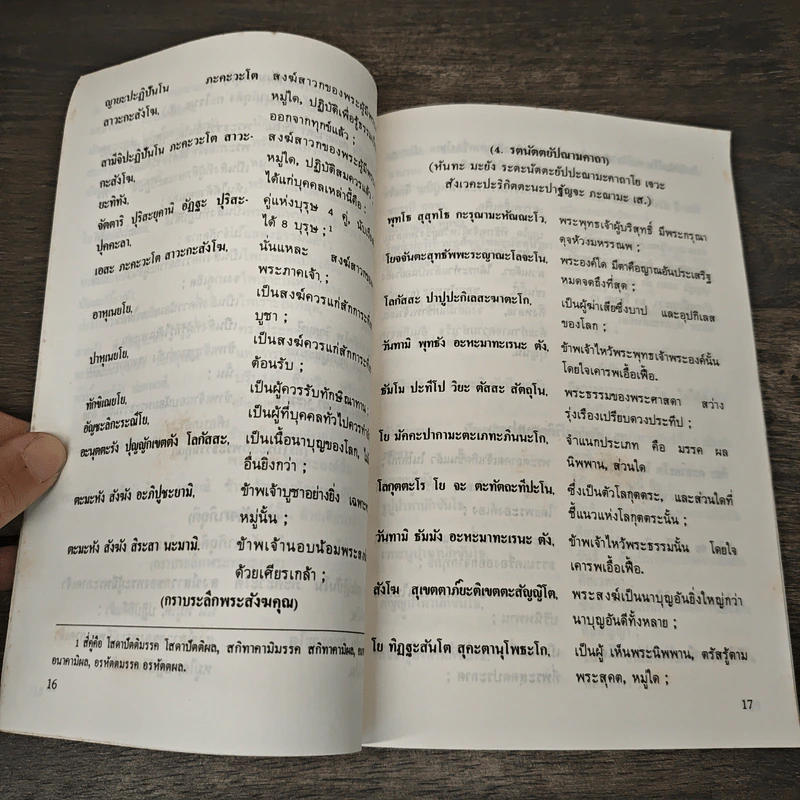 ญายะปะฏิปันโน ภะคะวะโต สงฆ์สาวกของพระผู้มีพระ
สาวะกะสังโฆ, หมู่ใด, ปฏิบัติเพื่อรู้ธรรม
ออกจากทุกข์แล้ว ;
สามีจิปะฏิปันโน ภะคะวะโต สาวะ- สงฆ์สาวกของพระผู้มีพระ
กะสังโฆ, หมู่ใด, ปฏิบัติสมควรแล้ว ;
ยะทิทัง, ได้แก่บุคคลเหล่านี้คือ :
จัตตาริ ปุริสะยุคานิ อัฏฐะ ปุริสะ- คู่แห่งบุรุษ 4 คู่,
ปุคคะลา, ได้ 8 บุรุษ ;¹
เอสะ ภะคะวะโต สาวะกะสังโฆ, นั่นแหละ สงฆ์สาวกของ
พระภาคเจ้า ;
อาหุเนยโย, เป็นสงฆ์ควรแก่สักการะที่
บูชา ;
ปาหุเนยโย, เป็นสงฆ์ควรแก่สักการะที่
ต้อนรับ ;
ทักขิเณยโย, เป็นผู้ควรรับทักษิณาทาน ;
อัญชะลิกะระณีโย, เป็นผู้ที่บุคคลทั่วไปควรทำ
อะนุตตะรัง ปุญญักเขตตัง โลกัสสะ, เป็นเนื้อนาบุญของโลก,
อื่นยิ่งกว่า ;
ตะมะหัง สังฆัง อะภิปูชะยามิ, ข้าพเจ้าบูชาอย่างยิ่ง เฉพาะ
หมู่นั้น ;
ตะมะหัง สังฆัง สิระสา นะมามิ. ข้าพเจ้านอบน้อมพระสงฆ์
ด้วยเศียรเกล้า ;
(กราบระลึกพระสังฆคุณ)
1 สี่คู่คือ โสดาปัตติมรรค โสดาปัตติผล, สกิทาคามิมรรค สกิทาคามิผล,
อนาคามิผล, อรหัตตมรรค อรหัตตผล.
16
(4. รตนัตตยัปณามคาถา)
(หันทะ มะยัง ระตะนัตตะยัปปะณามะคาถาโย เจวะ
สังเวคะปะริกิตตะนะปาฐัญจะ ภะณามะ เส.)
พุทโธ สุสุทโธ กะรุณามะหัณณะโว, พระพุทธเจ้าผู้บริสุทธิ์ มีพระกรุณา
ดุจห้วงมหรรณพ ;
โยจจันตะสุทธัพพะระญาณะโลจะโน, พระองค์ใด มีตาคือญาณอันประเสริฐ
หมดจดถึงที่สุด ;
โลกัสสะ ปาปูปะกิเลสะฆาตะโก, เป็นผู้ฆ่าเสียซึ่งบาป และอุปกิเลส
ของโลก ;
วันทามิ พุทธัง อะหะมาทะเรนะ ตัง, ข้าพเจ้าไหว้พระพุทธเจ้าพระองค์นั้น
โดยใจเคารพเอื้อเฟื้อ.
ธัมโม ปะทีโป วิยะ ตัสสะ สัตถุโน, พระธรรมของพระศาสดา สว่าง
รุ่งเรืองเปรียบดวงประทีป ;
โย มัคคะปากามะตะเภทะภินนะโก, จำแนกประเภท คือ มรรค ผล
นิพพาน, ส่วนใด
โลกุตตะโร โย จะ ตะทัตถะทีปะโน, ซึ่งเป็นตัวโลกุตตระ, และส่วนใดที่
ชี้แนวแห่งโลกุตตระนั้น ;
วันทามิ ธัมมัง อะหะมาทะเรนะ ตัง, ข้าพเจ้าไหว้พระธรรมนั้น โดยใจ
เคารพเอื้อเฟื้อ.
สังโฆ สุเขตตาภ์ยะติเขตตะสัญญิโต, พระสงฆ์เป็นนาบุญอันยิ่งใหญ่กว่า
นาบุญอันดีทั้งหลาย ;
โย ทิฏฐะสันโต สุคะตานุโพธะโก, เป็นผู้ เห็นพระนิพพาน, ตรัสรู้ตาม
พระสุคต, หมู่ใด ;
17